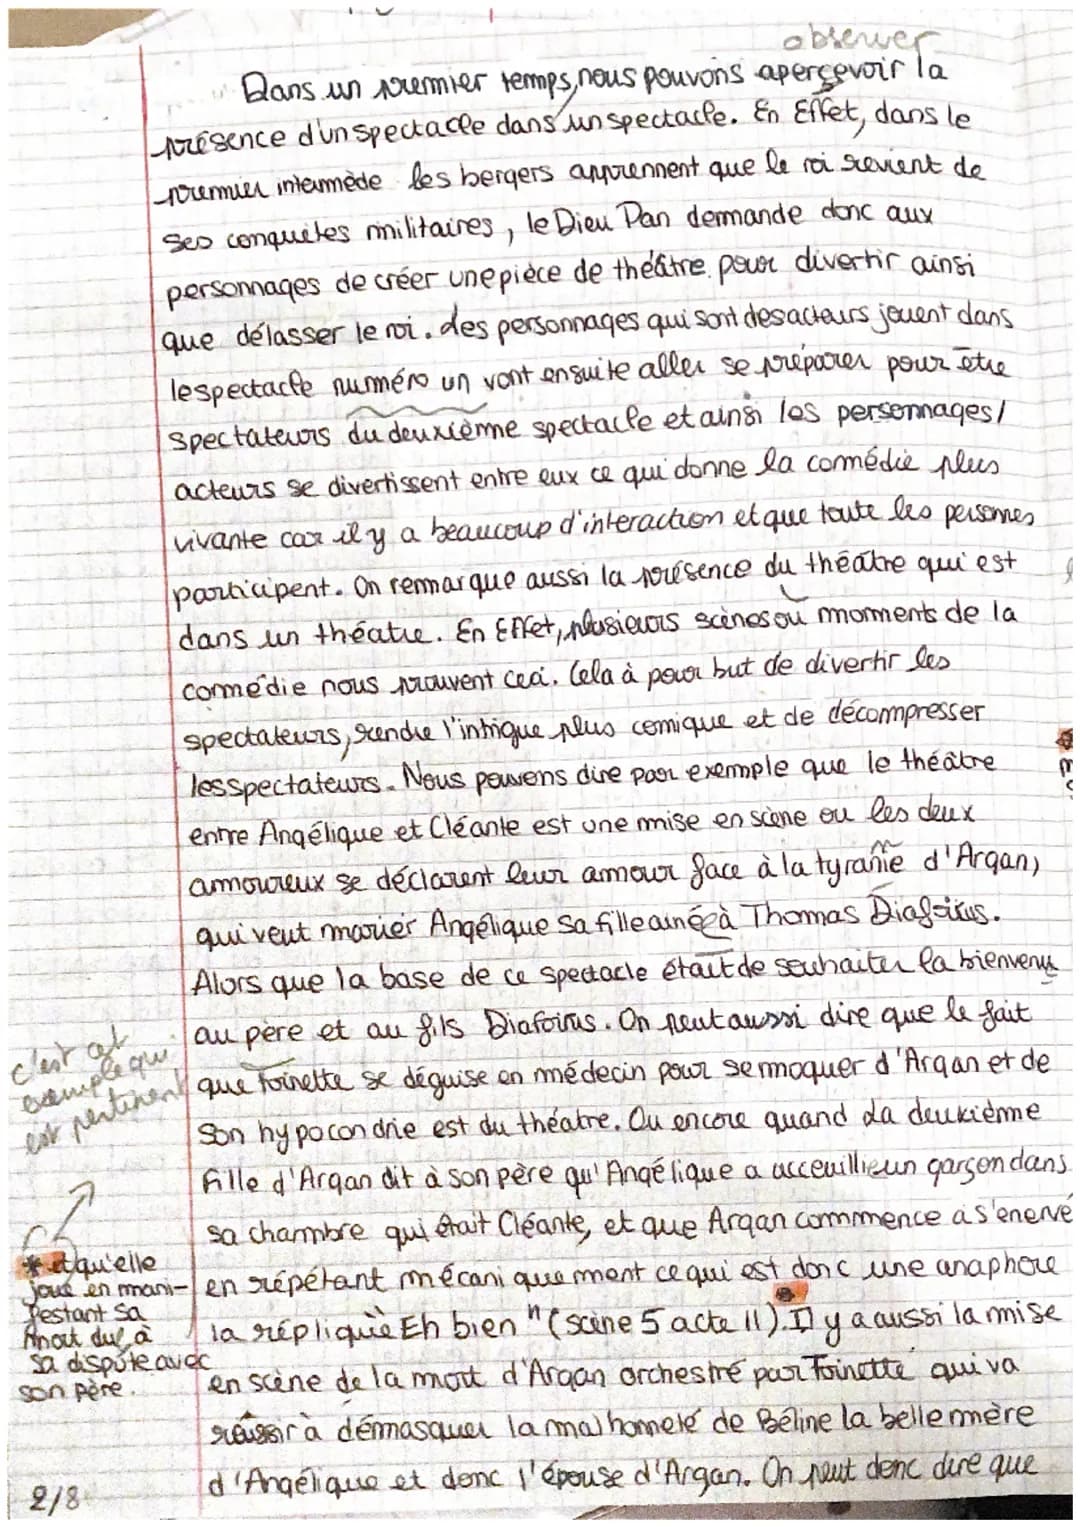 observer
Dans un premier temps, nous pouvons aperçevoir la
présence d'un spectacle dans un spectacle. En Effet, dans le
premier intermède les bergers apprennent que le roi revient de
ses conquêtes militaires, le Dieu Pan demande donc aux
personnages de créer une pièce de théâtre pour divertir ainsi
que délasser le roi. des personnages qui sont des acteurs jouent dans
le spectacle numéro un vont ensuite aller se préparer pour être
spectateurs du deuxième spectacle et ainsi les personnages/
acteurs se divertissent entre eux ce qui donne la comédie plus
vivante car il y a beaucoup d'interaction et que toute les personnes
participent. On remarque aussi la présence du théâtre qui est
dans un théatre. En Effet, plusieurs scènes ou moments de la
comédie nous prouvent ceci. Cela à pour but de divertir les
spectateurs, rendre l'intrigue plus comique et de décompresser
les spectateurs. Nous pouvons dire par exemple que le théâtre
entre Angélique et Cléante est une mise en scène ou les deux
amoureux se déclarent leur amour face à la tyranie d'Argan,
qui veut marier Angélique sa fille ainée à Thomas Diafoirus.
Alors que la base de ce spectacle était de souhaiter la bienvenu
au père et au fils Diafoirus. On peut aussi dire que le fait
c'est cet
exemple qui
est pertinent
que Toinette se déguise en médecin pour se moquer d'Argan et de
son hypocondrie est du théatre. Ou encore quand la deuxième
fille d'Argan dit à son père qu'Angélique a acceuillie un garçon dans
sa chambre qui était Cléante, et que Argan commence a s'enervé
* et qu'elle
joue en mani-
festant sa
mort du à
sa dispute avec
son père.
en répétant mécaniquement ce qui est donc une anaphore
la réplique Eh bien " (scène 5 acte II). Il y a aussi la mise
en scène de la mort d'Argan orchestré par Toinette qui va
réussir à démasquer la malhonneté de Béline la belle mère
d'Angélique et donc l'épouse d'Argan. On peut donc dire que
2/8